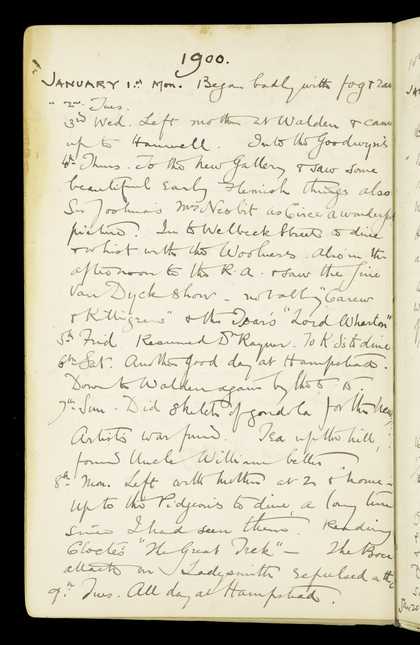 1900.
JANUARY 1st Mon. Began badly with fog & rain
" 2nd Tues.
3rd Wed. Left mother at Walden & came
up to Hanwell. Into the Goodwyn's
4th Thurs. To the New Gallery & saw some
beautiful Early Flemish things also
Sir Joshua's Mrs Nesbit as Circe a wonderful
picture. In to Welbeck Street to dine
& whist with the Woolners. Also in the
afternoon to the R.A. & saw the fine
Van Dyck show - notably "Carew
& Killigrew" & the Tsar's "Lord Wharton"
5th Frid Resumed Dr Rayner. To K.S. to dine
6th Sat. Another good day at Hampstead.
Down to Walden again by the 5
7th Sun. Did sketch of gondola for the
Artists war fund. Tea up the hill,
found Uncle William better.
8th Mon. Left with mother at 2 & home -
up to the Pidgeons to dine, a long time
since I had seen them. Reading
Cloete's "The Great Trek" - The Boer
attacks on Ladysmith repulsed
9th Tues. All day at Hampstead.